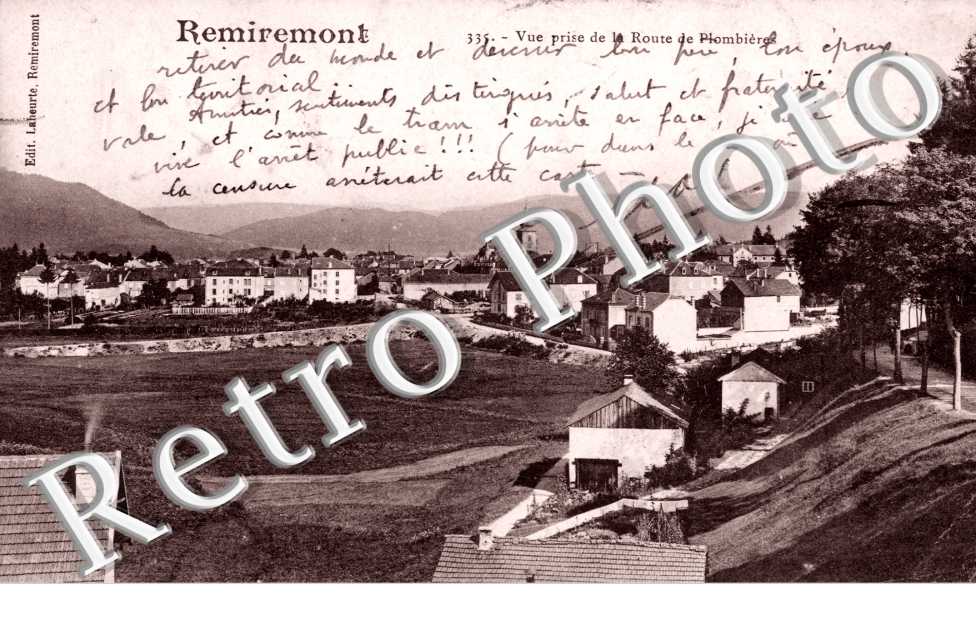 Remiremont
335. - Vue prise de la Route de Plombières
Edit. Laheurte, Remiremont
retirer du monde et devenir bon père, bon époux
et bon territorial
Amitiés, sentiments distingués, salut et fraternité
vale, et comme le tram s'arrête en face, je
vive l'arrêt public !!! ( pour dans le
la censure arrêterait cette
Retro Photo